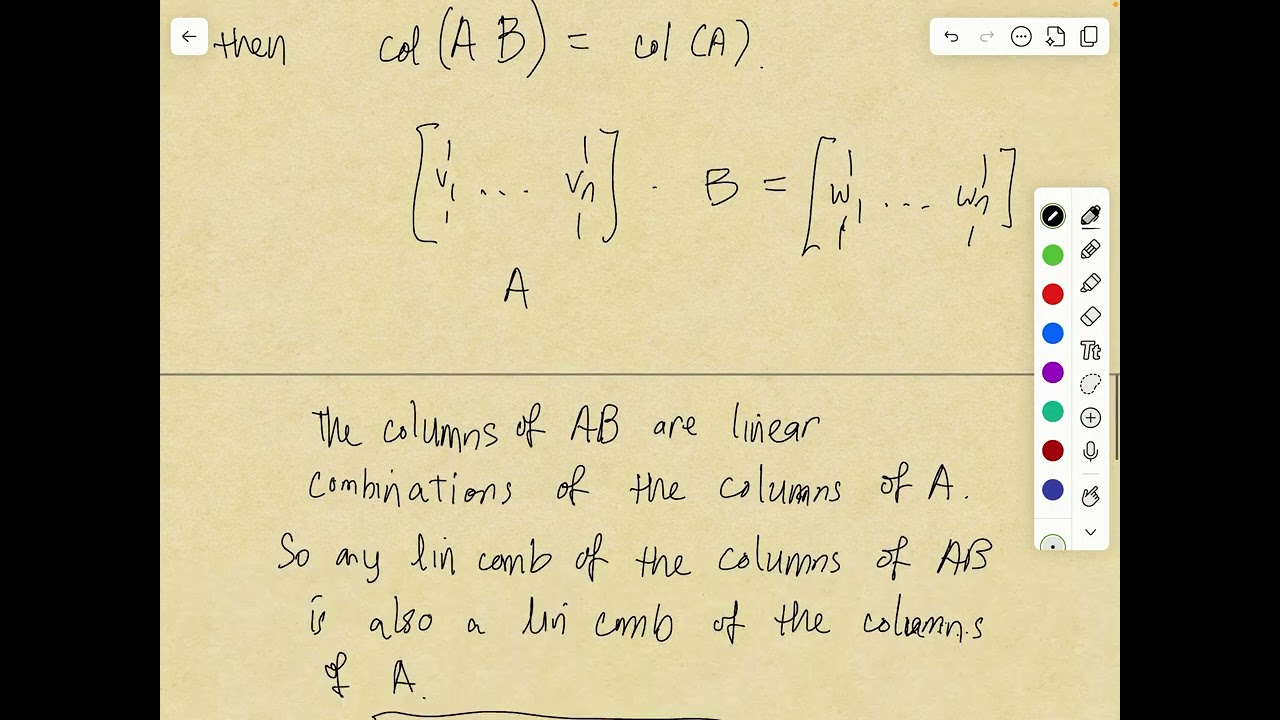 then col (A B) = col (A).
[v1 ... vn] . B = [w1 ... wn]
A
The columns of AB are linear
combinations of the columns of A.
So any lin comb of the columns of AB
is also a lin comb of the columns
of A.
Tt